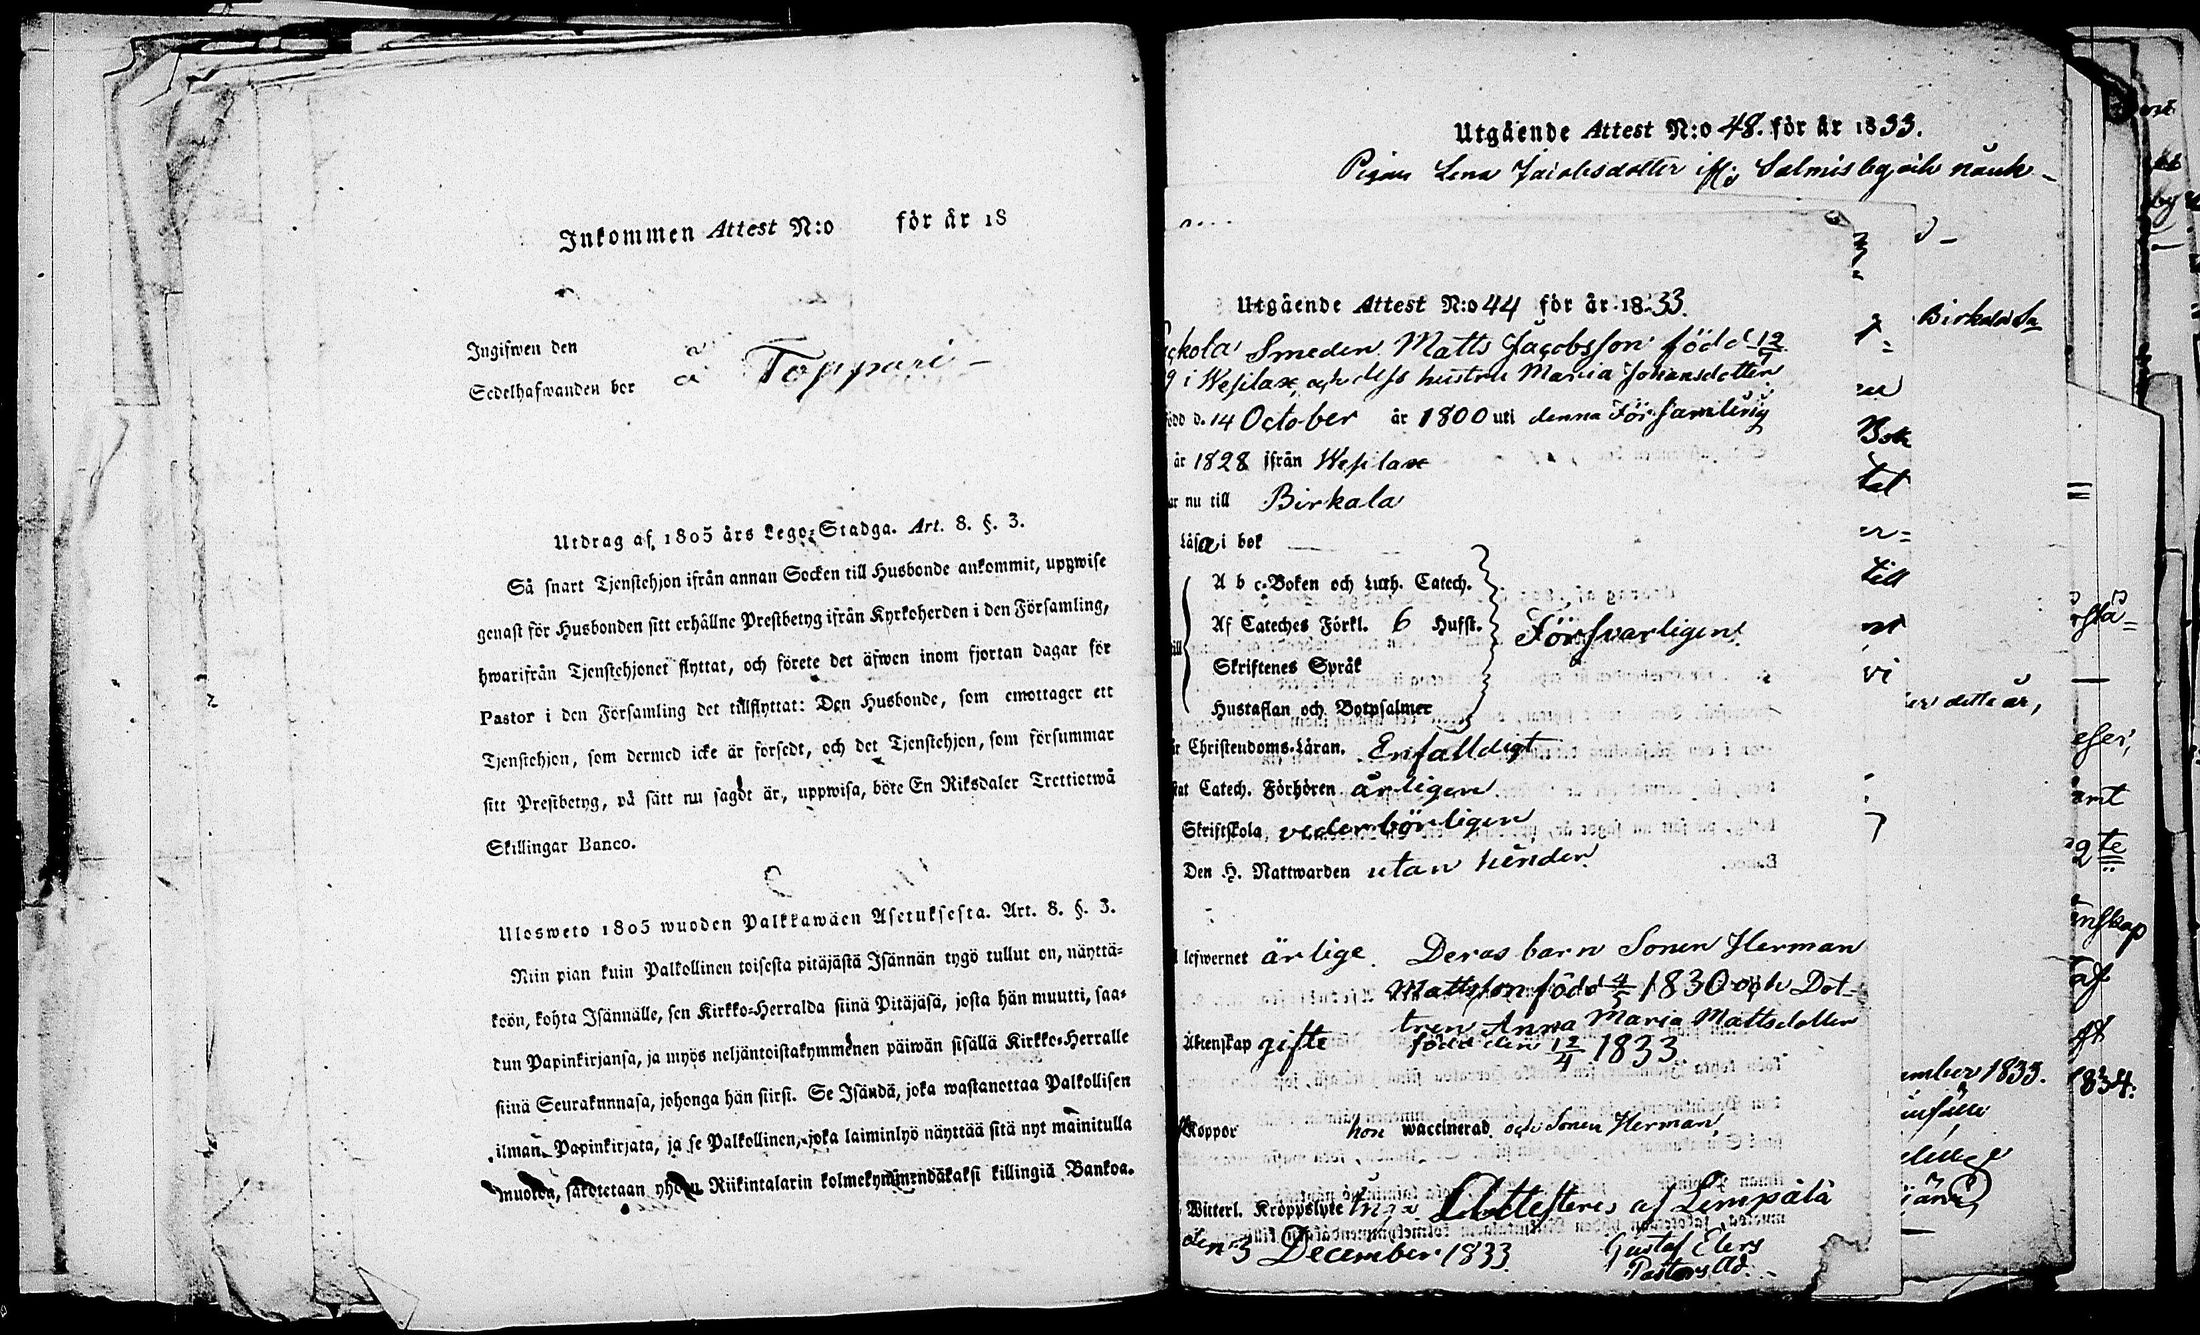 Inkommen Attest N:o för år 18
Ingifwen den
Sedelhafwanden bor å Toppari
Utdrag af 1805 års Lego-Stadga. Art. 8. §. 3.
Så snart Tjenstehjon ifrån annan Socken till Husbonde ankommit, uppwise
genast för Husbonden sitt erhållne Prestbetyg ifrån Kyrkoherden i den Församling,
hwarifrån Tjenstehjonet flyttat, och förete det äfwen inom fjortan dagar för
Pastor i den Församling det tillflyttat: Den Husbonde, som emottager ett
Tjenstehjon, som dermed icke är försedt, och det Tjenstehjon, som försummar
sitt Prestbetyg, på sätt nu sagdt är, uppwisa, böte En Riksdaler Trettiotwå
Skillingar Banco.
Ulosweto 1805 wuoden Palkkawäen Asetuksesta. Art. 8. §. 3.
Niin pian kuin Palkollinen toisesta pitäjästä Isännän tygö tullut on, näyttä-
köön, kohta Isännälle, sen Kirkko-Herralda siinä Pitäjäsä, josta hän muutti, saa-
dun Papinkirjansa, ja myös neljäntoistakymmenen päiwän sisällä Kirkko-Herralle
siinä Seurakunnasa, johonga hän siirsi. Se Isändä, joka wastanottaa Palkollisen
ilman Papinkirjata, ja se Palkollinen, joka laiminlyö näyttää sitä nyt mainitulla
muotoa, sakotetaan yhden Riikintalarin kolmekymmendäkaksi killingiä Bankoa.
Utgående Attest N:o 48. för år 1833.
Pigan Lena Jacobsdotter ifrå Salmis by, och nauk-
Birkala Sn
Utgående Attest N:o 44 för år 1833.
Smeden Matts Jacobsson född 12
i Wesilax, och dess hustru Maria Johansdotter
född d. 14 October år 1800 uti denna Församling
år 1828 ifrån Wesilax
nu till Birkala
Läsa i bok
A b c-Boken och Luth. Catech.
Af Cateches Förkl. 6 Hufst. Försvarligen
Skriftenes Språk
Hustaflan och Botpsalmer
Christendoms-Läran. Enfalldigt
Catech. Förhören årligen
Skriftskola vederbörligen
Den H. Nattwarden utan hinder
lefwernet ärlige. Deras barn Sonen Herman
Mattsson född 4/5 1830 och Dot-
tren Anna Maria Mattsdotter
Äktenskap gifte född den 12/4 1833
Koppor hon waccinerad och Sonen Herman
Witterl. Kroppslyte inga Attesteres af Lempälä
den 3 December 1833
Gustaf Elers
Pastors Ad.
Bok
till
vi
dette år,
ember 1833.
1834.